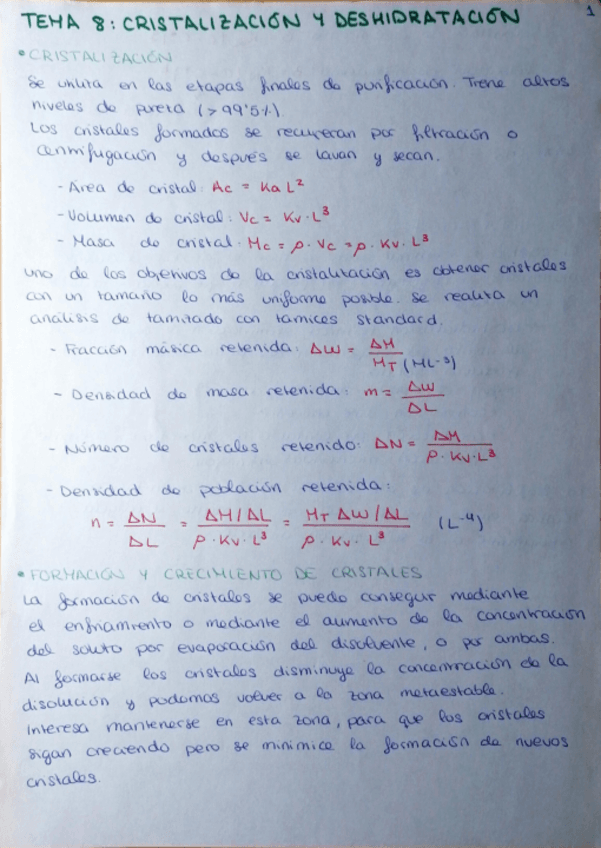 TEMA 8: CRISTALIZACIÓN Y DESHIDRATACIÓN
1
• CRISTALIZACIÓN
Se utiliza en las etapas finales de purificación. Tiene altos
niveles de pureza (>99'5%)
Los cristales formados se recuperan por filtración o
centrifugación y después se lavan y secan.
- Área de cristal: Ac = Ka L²
- Volumen de cristal: Vc = Kv · L³
- Masa de cristal: Mc = ρ · Vc = ρ · Kv · L³
uno de los objetivos de la cristalización es obtener cristales
con un tamaño lo más uniforme posible. Se realiza un
análisis de tamizado con tamices standard.
- Fracción másica retenida: ΔW = ΔM / M_T (ML⁻³)
- Densidad de masa retenida: m = ΔW / ΔL
- Número de cristales retenido: ΔN = ΔM / ρ · Kv · L³
- Densidad de población retenida:
n = ΔN / ΔL = ΔM/ΔL / ρ · Kv · L³ = M_T ΔW/ΔL / ρ · Kv · L³ (L⁻⁴)
• FORMACIÓN Y CRECIMIENTO DE CRISTALES
La formación de cristales se puede conseguir mediante
el enfriamiento o mediante el aumento de la concentración
del soluto por evaporación del disolvente, o por ambas.
Al formarse los cristales disminuye la concentración de la
disolución y podemos volver a la zona metaestable.
Interesa mantenerse en esta zona, para que los cristales
sigan creciendo pero se minimice la formación de nuevos
cristales.